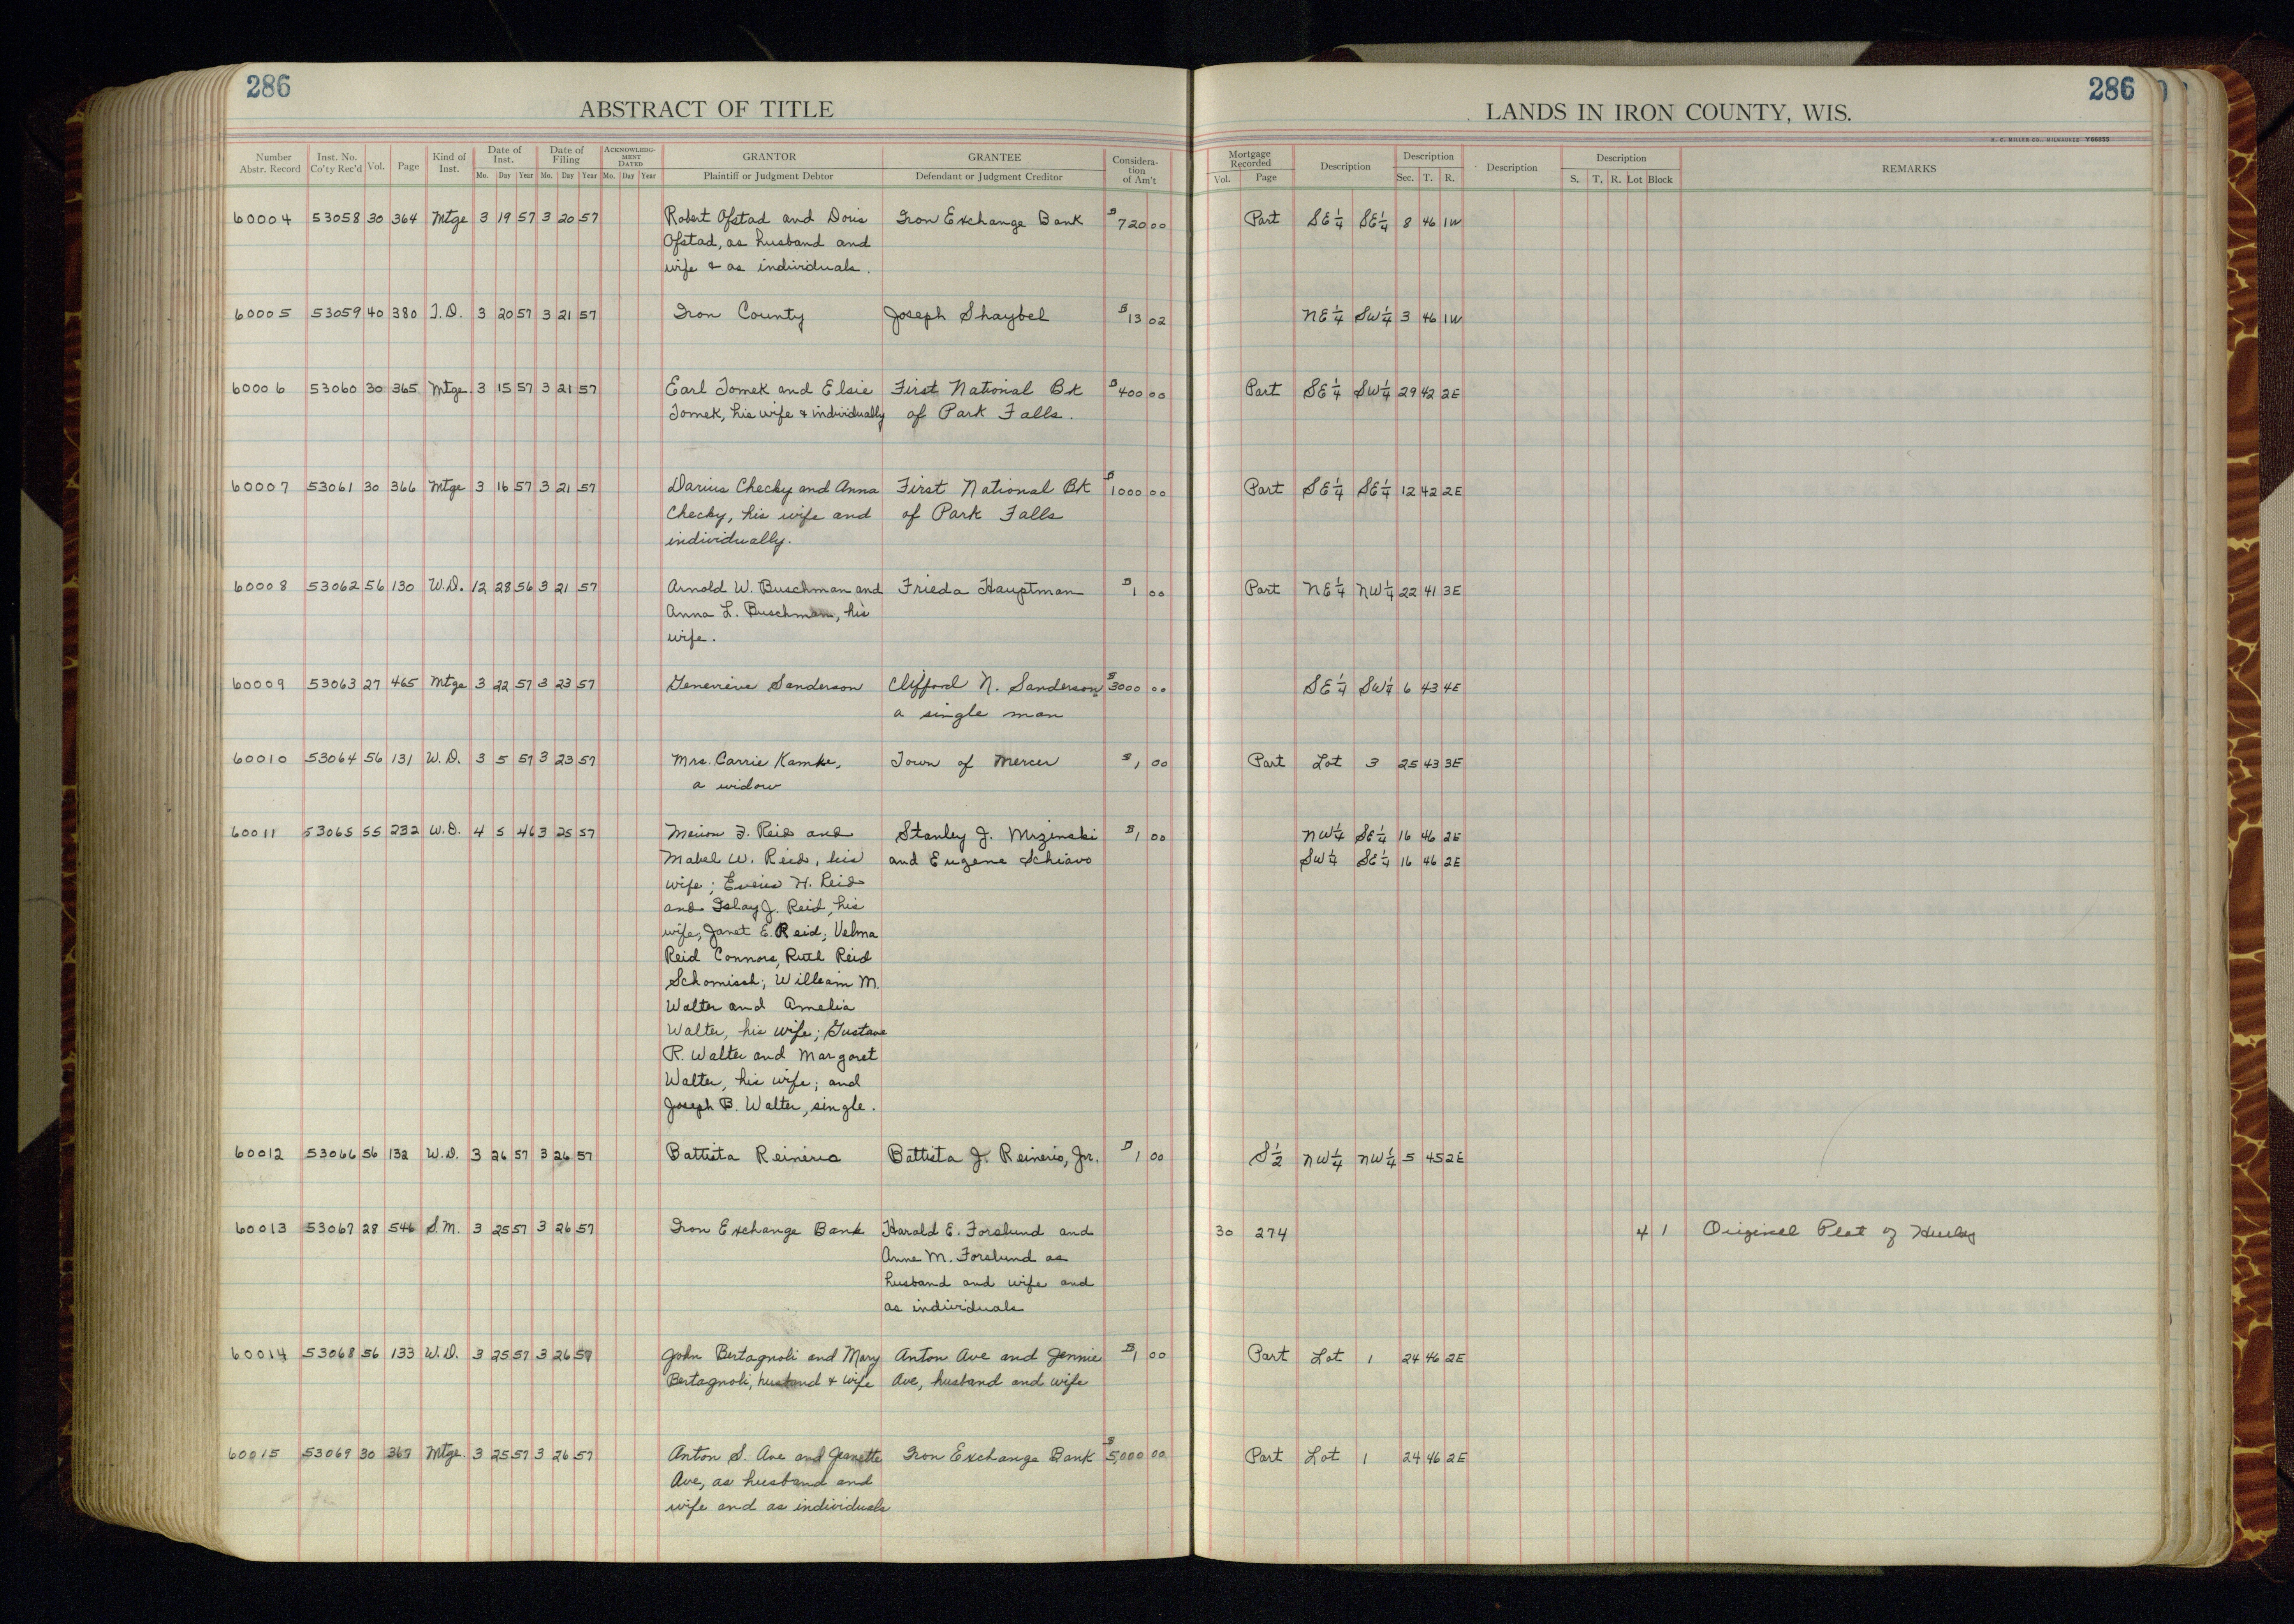 286
ABSTRACT OF TITLE
286
LANDS IN IRON COUNTY, WIS.
H. C. MILLER CO., MILWAUKEE Y66055
Number Abstr. Record | Inst. No. Co'ty Rec'd | Vol. | Page | Kind of Inst. | Date of Inst. Mo. Day Year | Date of Filing Mo. Day Year | ACKNOWLEDGMENT DATED Mo. Day Year | GRANTOR Plaintiff or Judgment Debtor | GRANTEE Defendant or Judgment Creditor | Consideration of Am't | Mortgage Recorded Vol. Page | Description | Description Sec. T. R. | Description | Description S. T. R. Lot Block | REMARKS
60004 53058 30 364 Mtge 3 19 57 3 20 57 Robert Ofstad and Doris Iron Exchange Bank $720 00 Part SE 1/4 SE 1/4 8 46 1W
Ofstad, as husband and
wife & as individuals.
60005 53059 40 380 T.D. 3 20 57 3 21 57 Iron County Joseph Shaybel $13 02 NE 1/4 SW 1/4 3 46 1W
60006 53060 30 365 Mtge. 3 15 57 3 21 57 Earl Tomek and Elsie First National Bk $400 00 Part SE 1/4 SW 1/4 29 42 2E
Tomek, his wife & individually of Park Falls.
60007 53061 30 366 Mtge 3 16 57 3 21 57 Darius Checky and Anna First National Bk $1000 00 Part SE 1/4 SE 1/4 12 42 2E
Checky, his wife and of Park Falls
individually.
60008 53062 56 130 W.D. 12 28 56 3 21 57 Arnold W. Buschman and Frieda Hauptman $1 00 Part NE 1/4 NW 1/4 22 41 3E
Anna L. Buschman, his
wife.
60009 53063 27 465 Mtge 3 22 57 3 23 57 Genevieve Sanderson Clifford N. Sanderson, $3000 00 SE 1/4 SW 1/4 6 43 4E
a single man
60010 53064 56 131 W.D. 3 5 57 3 23 57 Mrs. Carrie Kamke, Town of Mercer $1 00 Part Lot 3 25 43 3E
a widow
60011 53065 55 232 W.D. 4 5 46 3 25 57 F. Reid and Stanley J. Mrzinski $1 00 NW 1/4 SE 1/4 16 46 2E
Mabel W. Reid, his and Eugene Schiavo SW 1/4 SE 1/4 16 46 2E
wife; H. Reid
and Islay J. Reid, his
wife, Janet E. Reid; Velma
Reid Connors, Ruth Reid
Schomisch; William M.
Walter and Amelia
Walter, his wife; Gustave
R. Walter and Margaret
Walter, his wife; and
Joseph B. Walter, single.
60012 53066 56 132 W.D. 3 26 57 3 26 57 Battista Reinerio Battista J. Reinerio, Jnr. $1 00 S 1/2 NW 1/4 NW 1/4 5 45 2E
60013 53067 28 546 S.M. 3 25 57 3 26 57 Iron Exchange Bank Harald E. Forslund and 30 274 4 1 Original Plat of Hurley
Anne M. Forslund as
husband and wife and
as individuals
60014 53068 56 133 W.D. 3 25 57 3 26 57 John Bertagnoli and Mary Anton Ave and Jennie $1 00 Part Lot 1 24 46 2E
Bertagnoli, husband & wife Ave, husband and wife
60015 53069 30 367 Mtge. 3 25 57 3 26 57 Anton S. Ave and Jeanette Iron Exchange Bank $5,000 00 Part Lot 1 24 46 2E
Ave, as husband and
wife and as individuals